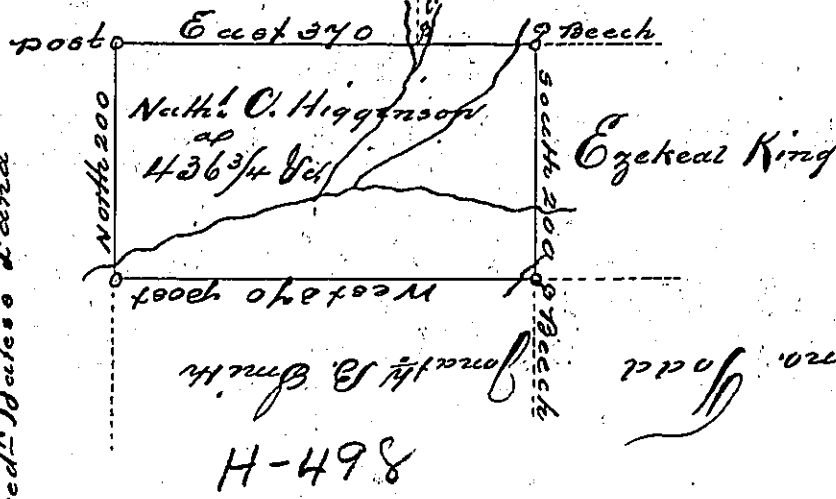 post
East 370
Beech
North 200
Nath!. O. Higginson
ap
436 3/4 Ys
South 200
Ezekeal King
West 370
post
Beech
Jonath. B. Smith
Todd
H-498